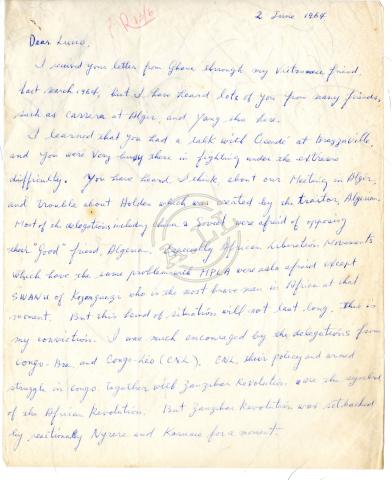 AR 1 2/6
2 June 1964
Dear Lucio,
I received your letter from Ghana through my Vietnamese friend,
last march 1964, but I have heard lots of you from many friends,
such as Carrera at Algir, and Yang Shu here.
I learned that you had a talk with at Brazzaville,
and you were very busy there in fighting under the extreme
difficulty. You have heard, I think, about our Meeting in Algir,
and trouble about Holden which was created by the traitor, Algerian.
Most of the delegations including China & Soviet were afraid of opposing
their "Good" friend, Algeria. Especially African Liberation Movements
which have the same problem with MPLA were also afraid except
SWANU of Kozonguizi who is the most brave man in Africa at that
moment. But this kind of situation will not last long. This is
my conviction. I was much encouraged by the delegations from
Congo-Bra and Congo-Leo (CNL). CNL, their policy and armed
struggle in Congo together with Zanzibar Revolution were the symbol
of the African Revolution. But Zanzibar Revolution was setbacked
by reactionally Nyrere and Karume for a moment.